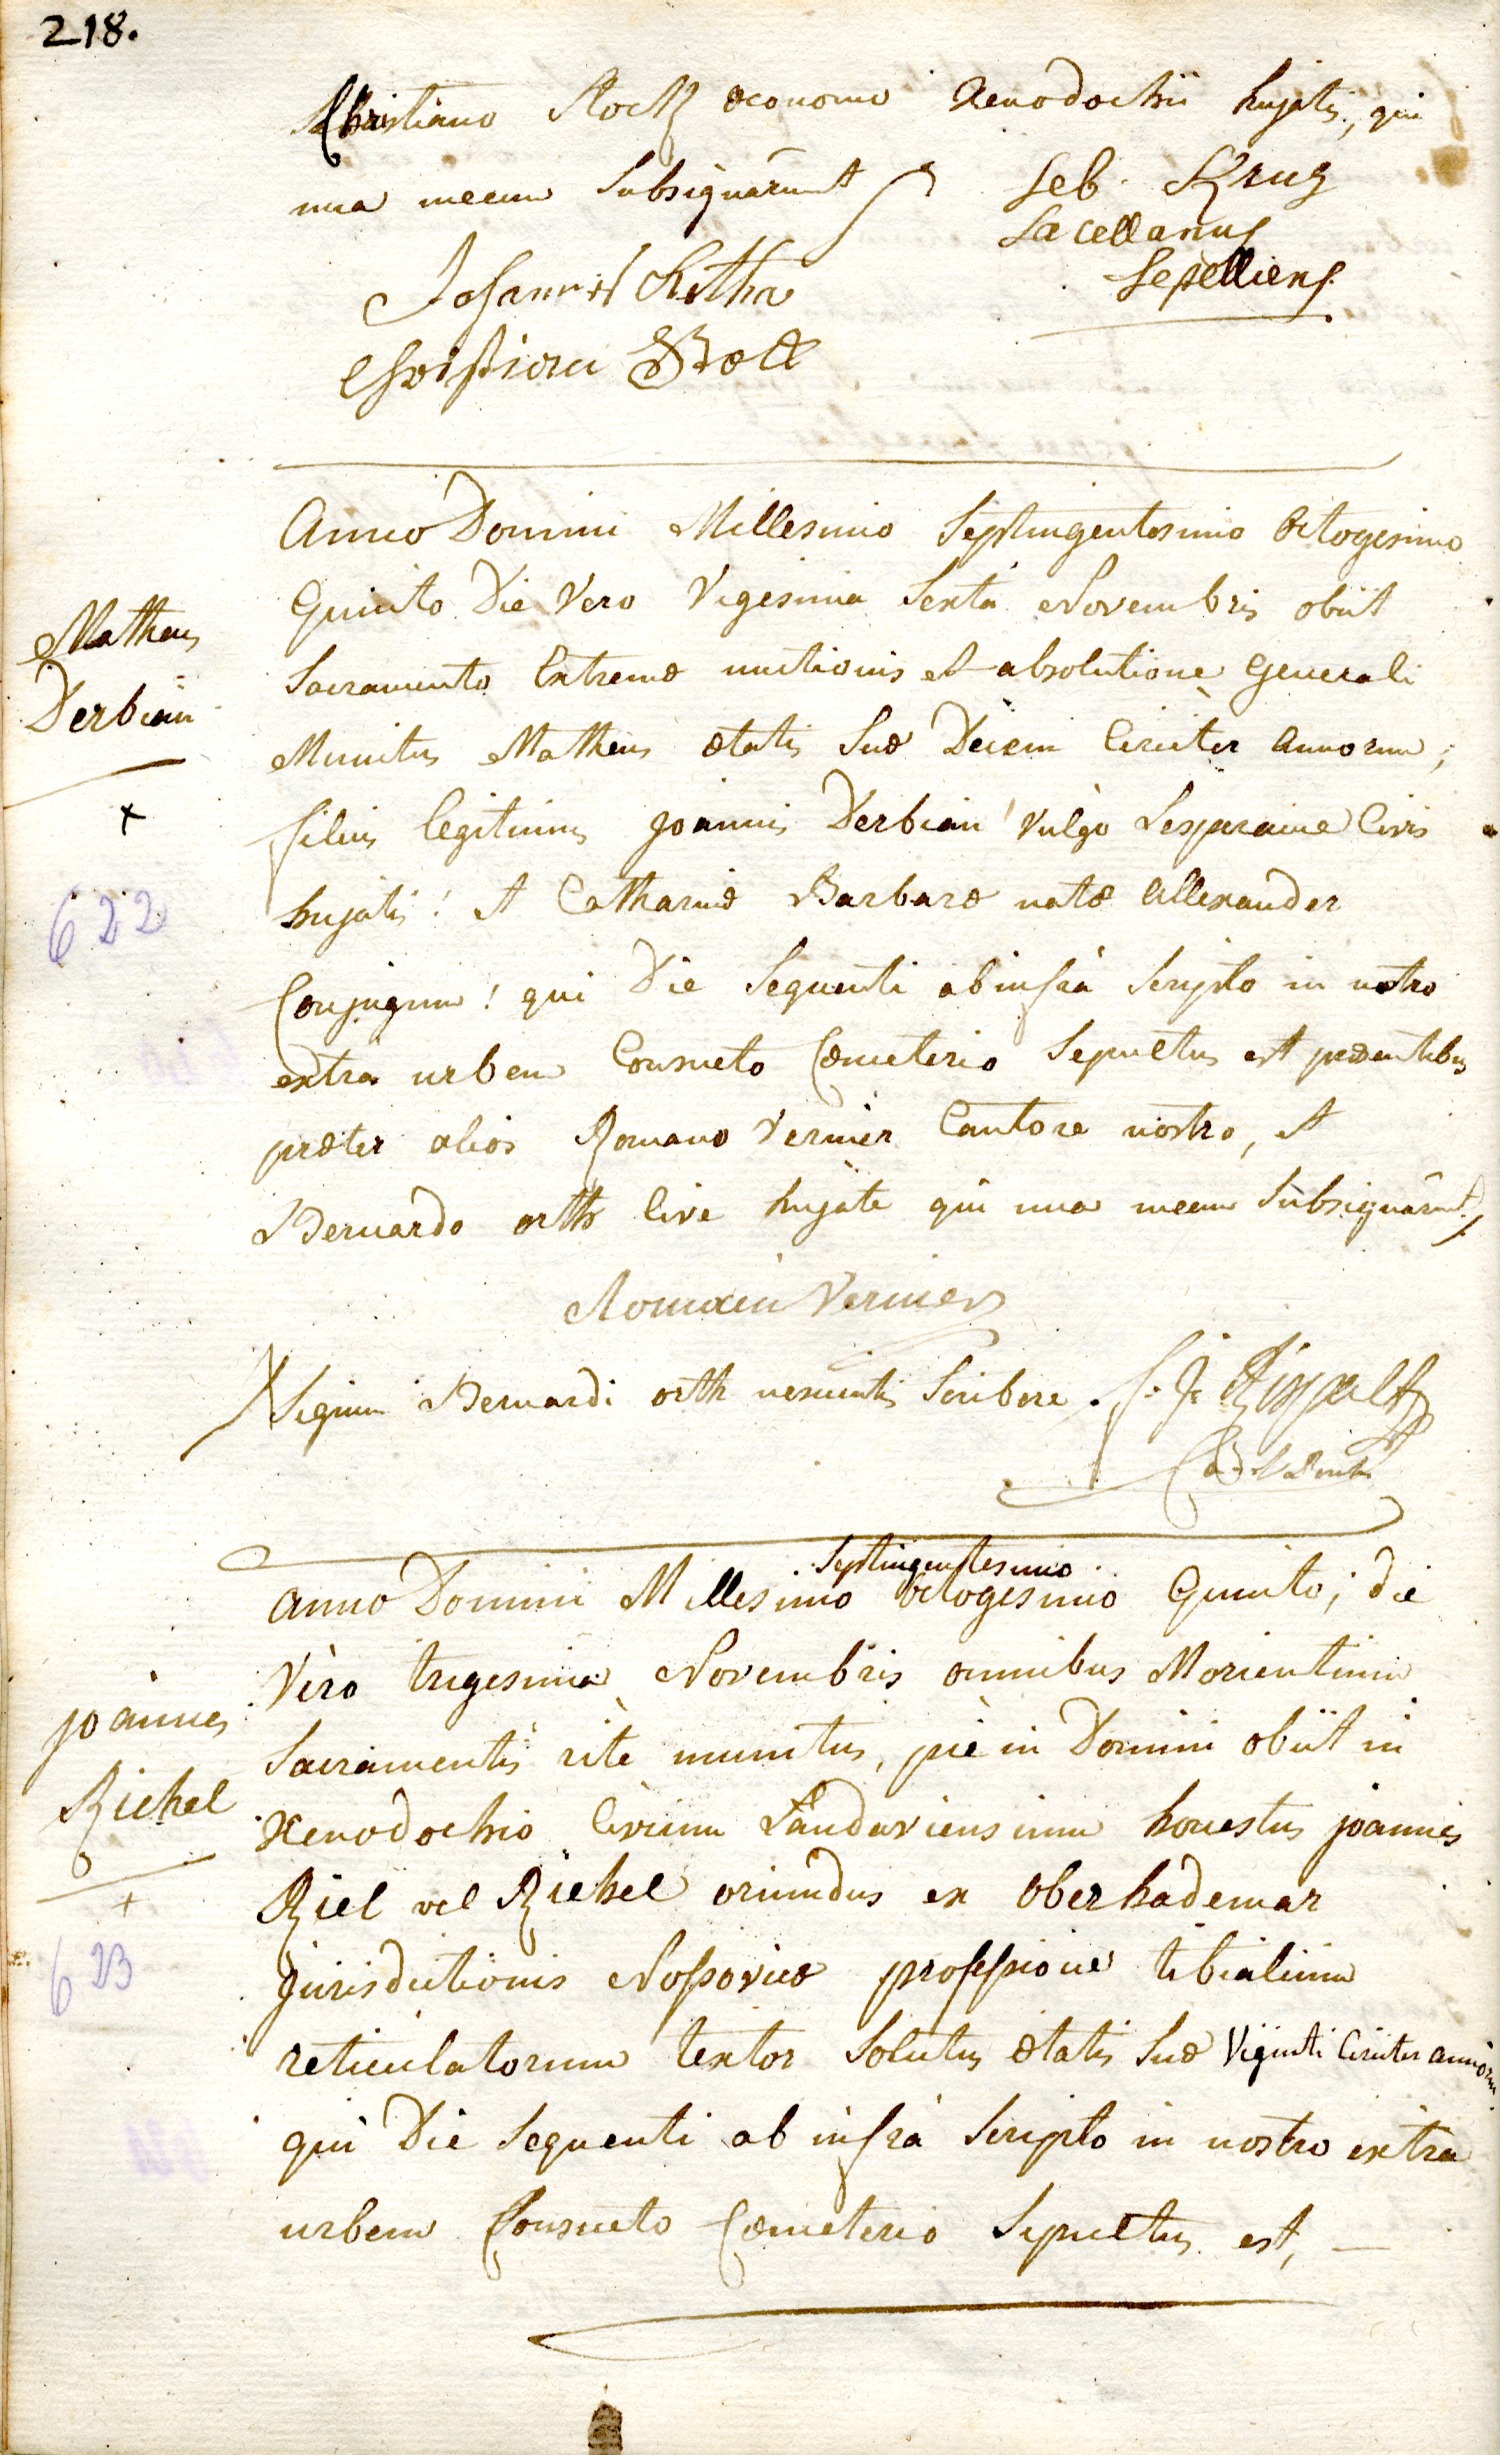 218.
Christiano Stock œconomo Xenodochii hujatis, qui
una mecum Subsignârunt Seb. Krug
Sacellanus
Sepelliens.
Johannes
Christian
Anno Domini Millesimo Septingentesimo Octogesimo
Quinto Die Vero Vigesima Sexta Novembris obiit
Matheus
Sacramento Extremæ unctionis et absolutione Generali
Derbian
Munitus Matheus ætatis Suæ Decem Circiter annorum;
+
filius legitimus joannis Derbian vulgo Lesperance Civis
622
hujatis! et Catharinæ Barbaræ natæ Allexander
Conjugum! qui Die Sequenti ab infrà Scripto in nostro
extra urbem Consueto Cœmeterio Sepultus est præsentibus
præter alios Romano Vernier Cantore nostro, et
Bernardo orth Cive hujate qui una mecum Subsignârunt.
Romain Vernier
X Signum Bernardi orth nescientis Scribere.
Septingentesimo
Anno Domini Millesimo octogesimo Quinto; die
Vero trigesima Novembris omnibus Morientium
joannes
Sacramentis ritè munitus, piè in Domini obiit in
Richel
Xenodochio Civium Landaviensium honestus joannes
Riel vel Riehel oriundus ex Oberhademar
+
623
jurisdictionis Nassovicæ professione tibialium
reticulatorum textor Solutus ætatis Suæ Viginti Circiter annorum
qui Die Sequenti ab infrà Scripto in nostro extra
urbem Consueto Cœmeterio Sepultus est, —